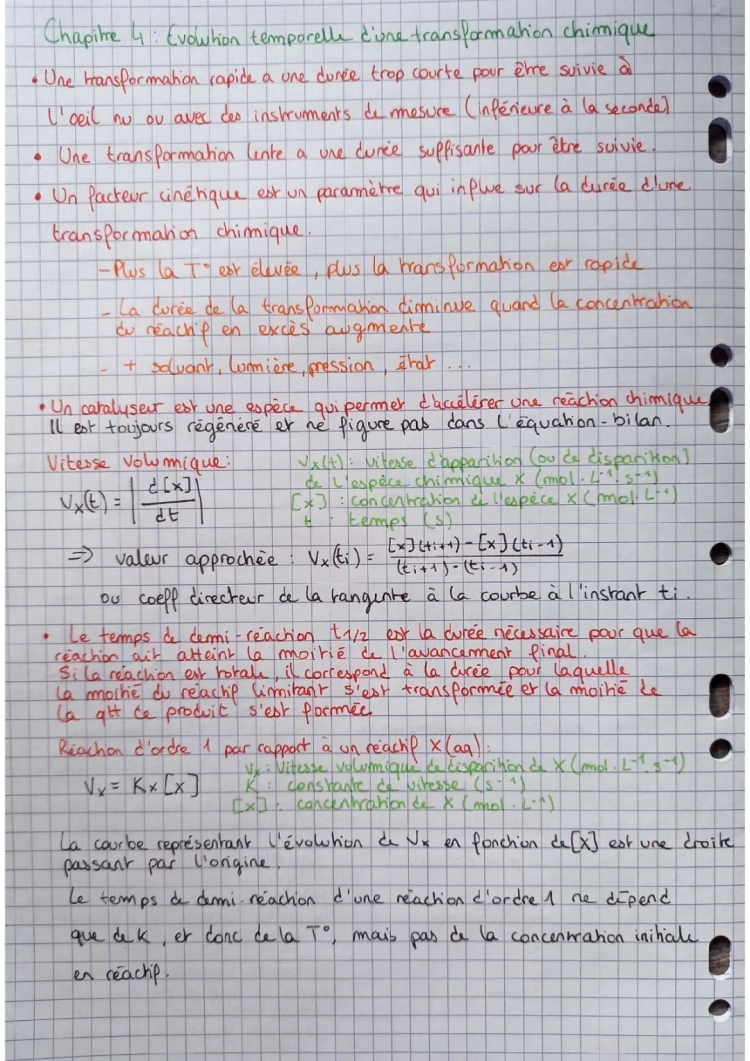 Chapitre 4 : Evolution temporelle d'une transformation chimique
• Une transformation rapide a une durée trop courte pour être suivie à
l'oeil nu ou avec des instruments de mesure (inférieure à la seconde)
• Une transformation lente a une durée suffisante pour être suivie.
• Un facteur cinétique est un paramètre qui influe sur la durée d'une
transformation chimique.
- Plus la T° est élevée, plus la transformation est rapide
- La durée de la transformation diminue quand la concentration
du réactif en excès augmente
- + solvant, lumière, pression, état ...
• Un catalyseur est une espèce qui permet d'accélérer une réaction chimique
Il est toujours régénéré et ne figure pas dans l'équation-bilan.
Vitesse volumique:
Vx(t) = | d[x] / dt |
Vx(t): vitesse d'apparition (ou de disparition)
de l'espèce chimique X (mol. L⁻¹. s⁻¹)
[x] : concentration de l'espèce X (mol. L⁻¹)
t : temps (s)
⇒ valeur approchée : Vx(ti) = [x](ti+1) - [x](ti-1) / (ti+1) - (ti-1)
ou coeff directeur de la tangente à la courbe à l'instant ti.
• Le temps de demi-réaction t1/2 est la durée nécessaire pour que la
réaction ait atteint la moitié de l'avancement final.
Si la réaction est totale, il correspond à la durée pour laquelle
la moitié du réactif limitant s'est transformée et la moitié de
la qtt de produit s'est formée
Réaction d'ordre 1 par rapport à un réactif X(aq):
Vx = K x [x]
Vx : Vitesse volumique de disparition de X (mol. L⁻¹. s⁻¹)
K : constante de vitesse (s⁻¹)
[x] : concentration de X (mol. L⁻¹)
La courbe représentant l'évolution de Vx en fonction de [X] est une droite
passant par l'origine.
Le temps de demi-réaction d'une réaction d'ordre 1 ne dépend
que de K, et donc de la T°, mais pas de la concentration initiale
en réactif.